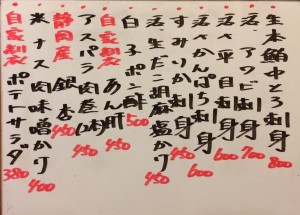 生本鮪中とろ刺身 800
活アワビ刺身 700
活〆平目刺身 600
活〆かんぱち刺身 600
すみいか刺身 450
活生だこ胡麻塩かけ 450
白子ポン酢 500
自家製 あん肝 450
アスパラ肉巻 450
静岡産 銀杏 450
米ナス肉味噌かけ 400
自家製 ポテトサラダ 380